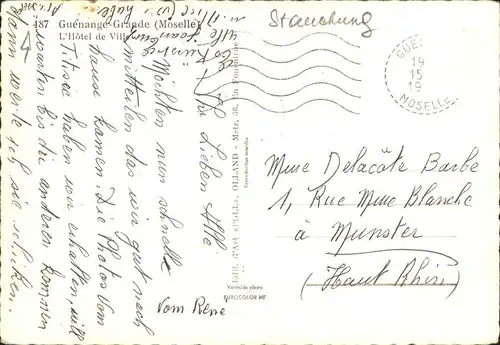 487 Guénange-Grande (Moselle)
L'Hôtel de Ville
Stauchung
GUE
19
15
19
MOSELLE
Ihr Lieben Alle
Möchten nun schnell
mitteilen das wir gut nach
hause kamen. Die Photos vom
Titisee haben wir erhalten, will
warten bis die anderen kommen
dann werde ich sie schicken.
Vom Rene
Edit. d'Art «CELL», OLLAND - Metz, 56, En Fournirue
Reproduction interdite
Véritable photo
EUROCOLOR
Mme Delacôte Barbe
1, Rue Mme Blanche
à Munster
(Haut Rhin)